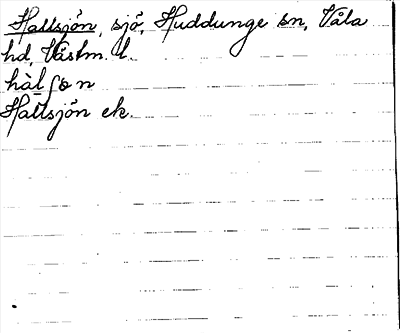 Hallsjön, sjö, Huddunge sn, Våla
hd, Västm. l.
hàlʃo̤n
Hallsjön ek.